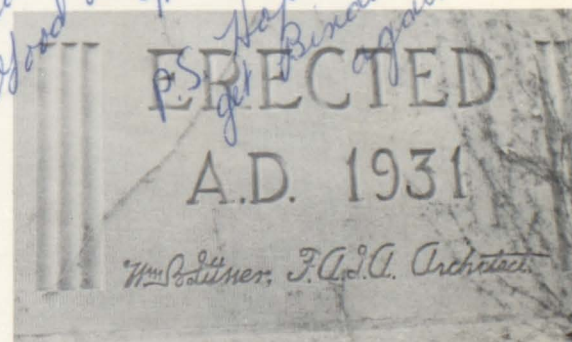 Good
P.S. Hop
get Bin
ERECTED
A.D. 1931
Wm B Ittner, F.A.I.A. Architect.